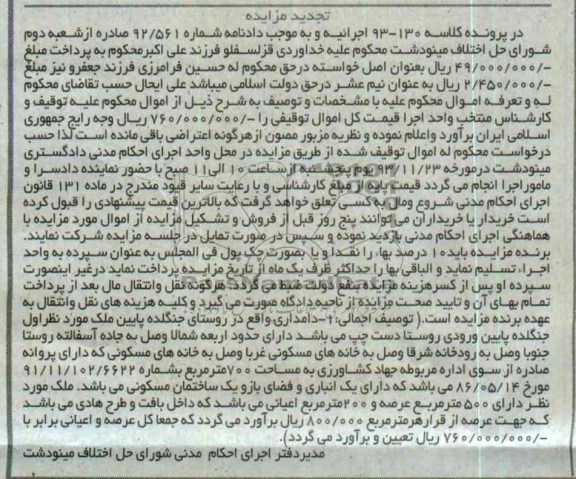 تجدید مزایده
در پرونده کلاسه ۱۳۰-۹۳ اجرائیه و به موجب دادنامه شماره ۹۲/۵۶۱ صادره ازشعبه دوم
شورای حل اختلاف مینودشت محکوم علیه خداوردی قزلسفلو فرزند علی اکبرمحکوم به پرداخت مبلغ
۴۹/۰۰۰/۰۰۰/- ریال بعنوان اصل خواسته درحق محکوم له حسین فرامرزی فرزند جعفرو نیز مبلغ
۲/۴۵۰/۰۰۰/- ریال به عنوان نیم عشر درحق دولت اسلامی میباشد علی ایحال حسب تقاضای محکوم
له و تعرفه اموال محکوم علیه با مشخصات و توصیف به شرح ذیل از اموال محکوم علیه توقیف و
کارشناس منتخب واحد اجرا قیمت کل اموال توقیفی را ۷۶۰/۰۰۰/۰۰۰/- ریال وجه رایج جمهوری
اسلامی ایران برآورد واعلام نموده و نظریه مزبور مصون ازهرگونه اعتراضی باقی مانده است لذا حسب
درخواست محکوم له اموال توقیف شده از طریق مزایده در محل واحد اجرای احکام مدنی دادگستری
مینودشت درمورخه ۹۳/۱۱/۲۳ یوم پنجشنبه ازساعت ۱۰ الی ۱۱ صبح با حضور نماینده دادسرا و
ماموراجرا انجام می گردد قیمت پایه از مبلغ کارشناسی و با رعایت سایر قیود مندرج در ماده ۱۳۱ قانون
اجرای احکام مدنی شروع ومال به کسی تعلق خواهد گرفت که بالاترین قیمت پیشنهادی را قبول کرده
است خریدار یا خریداران می توانند پنج روز قبل از فروش و تشکیل مزایده از اموال مورد مزایده با
هماهنگی اجرای احکام مدنی بازدید نموده و سپس در صورت تمایل در جلسه مزایده شرکت نمایند.
برنده مزایده باید ۱۰ درصد بها، را نقدا و یا بصورت چک پول فی المجلس به عنوان سپرده به واحد
اجرا، تسلیم نماید و الباقی بها را حداکثر ظرف یک ماه از تاریخ مزایده پرداخت نماید درغیر اینصورت
سپرده او پس از کسرهزینه مزایده بنفع دولت ضبط می گردد. هرگونه نقل وانتقال مال بعد از پرداخت
تمام بهای آن و تایید صحت مزایده از ناحیه دادگاه صورت می گیرد و کلیه هزینه های نقل وانتقال به
عهده برنده مزایده است.( توصیف اجمالی:۱-دامداری واقع در روستای جنگلده پایین ملک مورد نظراول
جنگلده پایین ورودی روستا دست چپ می باشد دارای حدود اربعه شمالا وصل به جاده آسفالته روستا
جنوبا وصل به رودخانه شرقا وصل به خانه های مسکونی غربا وصل به خانه های مسکونی که دارای پروانه
صادره از سوی اداره مربوطه جهاد کشاورزی به مساحت ۷۰۰مترمربع بشماره ۹۱/۱۱/۱۰۲/۶۶۲۲
مورخ ۸۶/۰۵/۱۴ می باشد که دارای یک انباری و فضای بازو یک ساختمان مسکونی می باشد. ملک مورد
نظر دارای ۵۰۰ مترمربع عرصه و ۲۰۰مترمربع اعیانی می باشد که داخل بافت و طرح هادی می باشد
که جهت عرصه از قرارهرمترمربع ۸۰۰/۰۰۰ ریال برآورد می گردد که جمعا کل عرصه و اعیانی برابر با
۷۶۰/۰۰۰/۰۰۰/- ریال تعیین و برآورد می گردد).
مدیردفتر اجرای احکام مدنی شورای حل اختلاف مینودشت